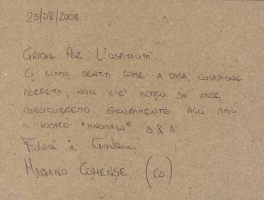 23/08/2008
GRAZIE PER L'OSPITALITÀ.
CI SIAMO SENTITI COME A CASA, COLAZIONE
PERFETTA, NON C'È ALTRO DA DIRE.
CONSIGLIEREMO SICURAMENTE AGLI AMICI
IL VOSTRO B&B
Fulvia e
MARIANO COMENSE (CO)